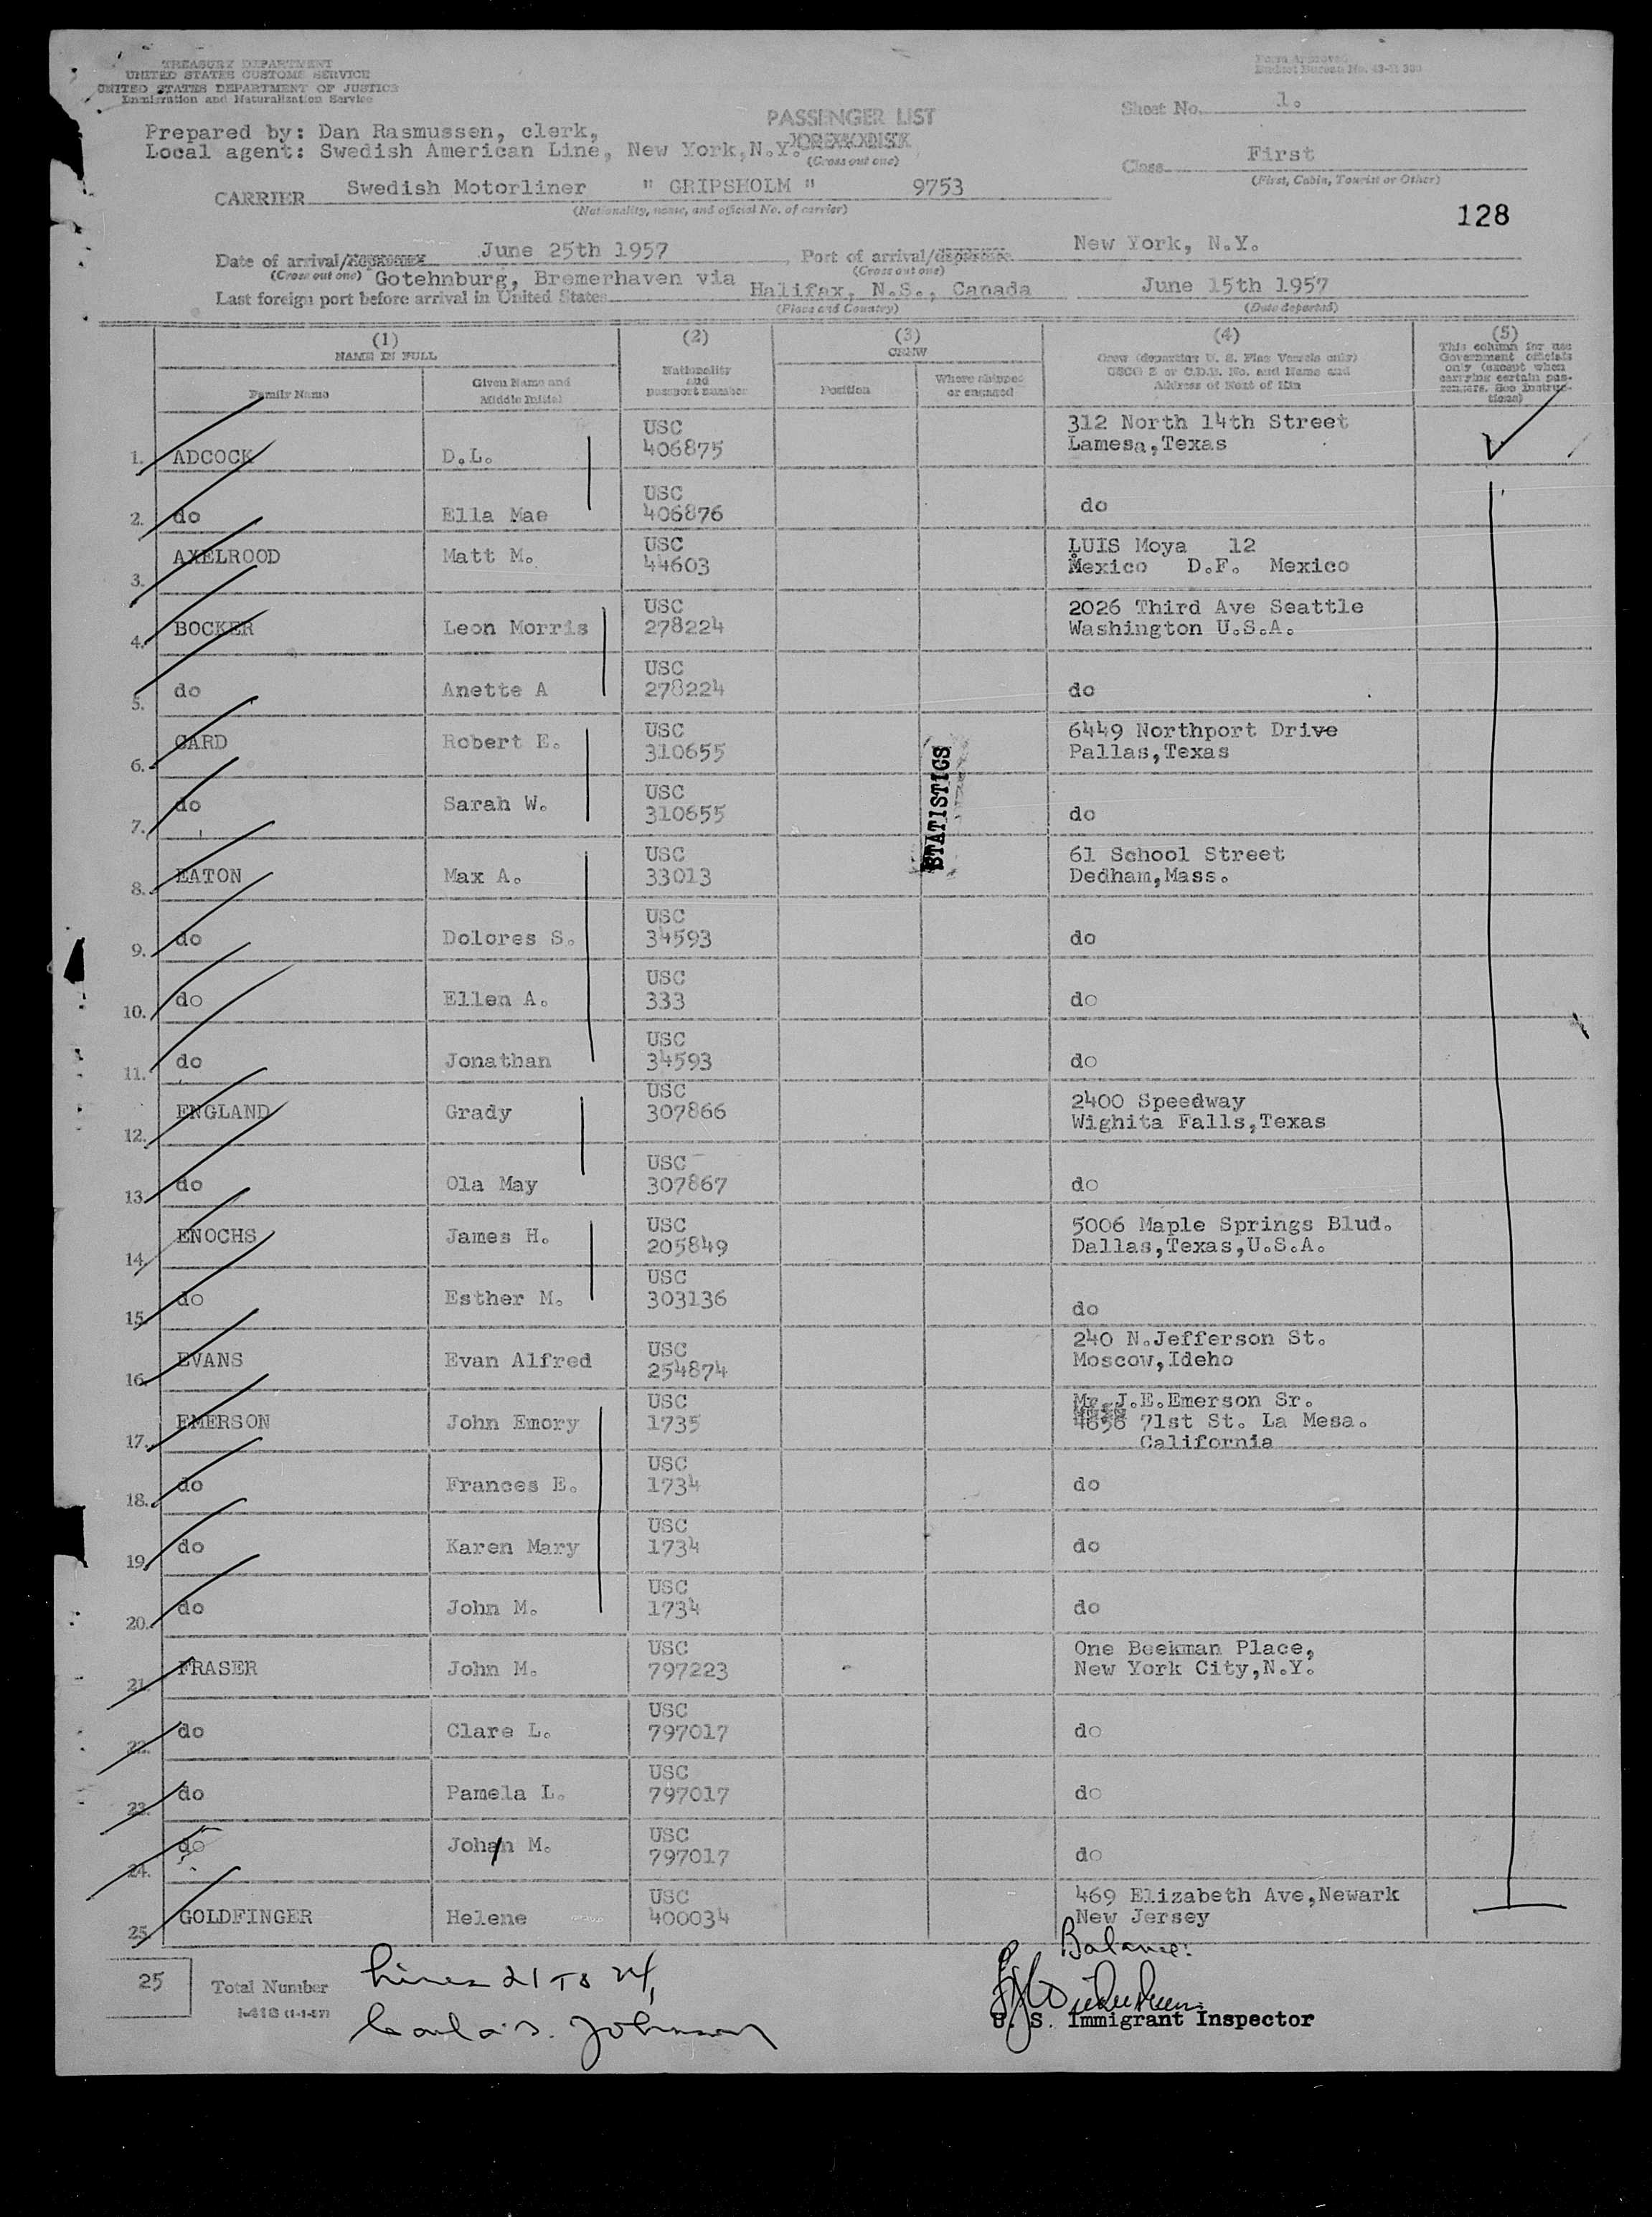 TREASURY DEPARTMENT
UNITED STATES CUSTOMS SERVICE
UNITED STATES DEPARTMENT OF JUSTICE
Immigration and Naturalization Service
Form Approved
Budget Bureau No. 43-R
Sheet No. 1.
Prepared by: Dan Rasmussen, clerk,
Local agent: Swedish American Line, New York,N.Y.
PASSENGER LIST
(Cross out one)
Class First
(First, Cabin, Tourist or Other)
CARRIER Swedish Motorliner " GRIPSHOLM " 9753
(Nationality, name, and official No. of carrier)
128
Date of arrival/departure June 25th 1957, Port of arrival/departure New York, N.Y.
(Cross out one) (Cross out one)
Gotehnburg, Bremerhaven via
Last foreign port before arrival in United States Halifax, N.S., Canada June 15th 1957
(Place and Country) (Date departed)
(1) NAME IN FULL
Family Name
Given Name and Middle Initial
(2) Nationality and passport number
(3) CREW
Position
Where shipped or engaged
(4) Crew (departing U. S. Flag Vessels only)
USCG Z or C.D.B. No. and Name and
Address of Next of Kin
(5) This column for use
Government officials
only (except when
carrying certain pas-
sengers. See Instruc-
tions)
1. ADCOCK D.L. USC 406875 312 North 14th Street Lamesa,Texas
2. do Ella Mae USC 406876 do
3. AXELROOD Matt M. USC 44603 LUIS Moya 12 Mexico D.F. Mexico
4. BOCKER Leon Morris USC 278224 2026 Third Ave Seattle Washington U.S.A.
5. do Anette A USC 278224 do
6. CARD Robert E. USC 310655 6449 Northport Drive Pallas,Texas
7. do Sarah W. USC 310655 do
STATISTICS
8. EATON Max A. USC 33013 61 School Street Dedham,Mass.
9. do Dolores S. USC 34593 do
10. do Ellen A. USC 333 do
11. do Jonathan USC 34593 do
12. ENGLAND Grady USC 307866 2400 Speedway Wighita Falls,Texas
13. do Ola May USC 307867 do
14. ENOCHS James H. USC 205849 5006 Maple Springs Blud. Dallas,Texas,U.S.A.
15. do Esther M. USC 303136 do
16. EVANS Evan Alfred USC 254874 240 N.Jefferson St. Moscow,Ideho
17. EMERSON John Emory USC 1735 Mr. J.E.Emerson Sr. 4656 71st St. La Mesa. California
18. do Frances E. USC 1734 do
19. do Karen Mary USC 1734 do
20. do John M. USC 1734 do
21. FRASER John M. USC 797223 One Beekman Place, New York City,N.Y.
22. do Clare L. USC 797017 do
23. do Pamela L. USC 797017 do
24. do Johan M. USC 797017 do
25. GOLDFINGER Helene USC 400034 469 Elizabeth Ave,Newark New Jersey
25 Total Number
I-418 (1-1-57)
Lines 21 to 24,
Carl S. Johnson
Balance:
U. S. Immigrant Inspector